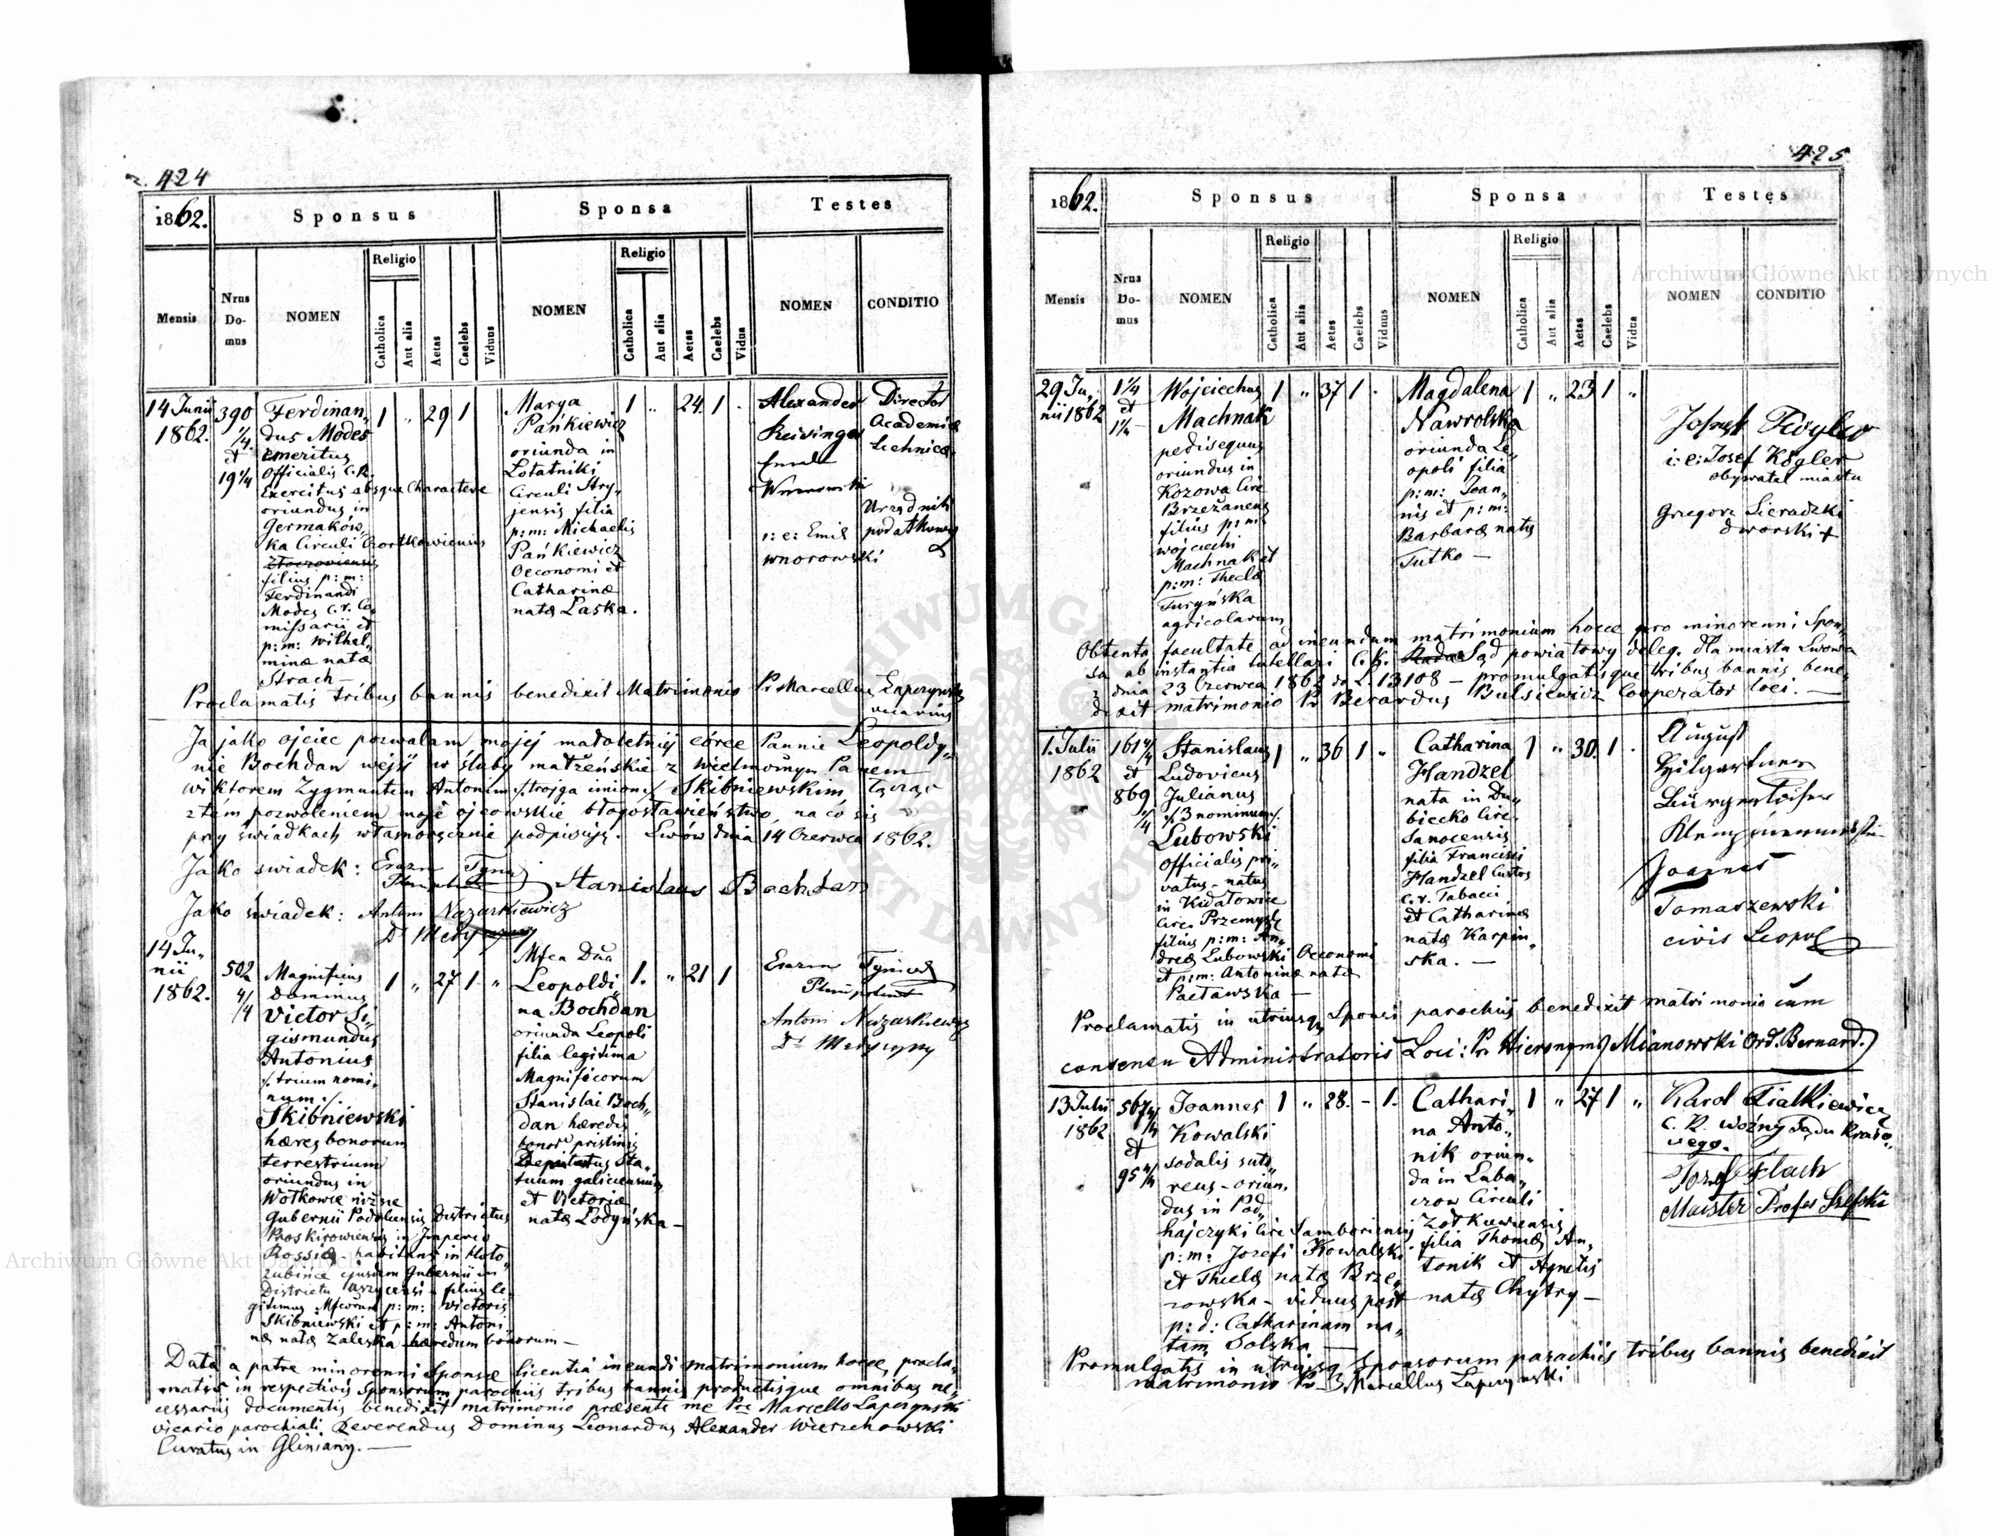 424
1862.
Sponsus
Sponsa
Testes
Mensis
Nrus Do- mus
NOMEN
Religio
Catholica
Aut alia
Aetas
Caelebs
Viduus
NOMEN
Religio
Catholica
Aut alia
Aetas
Caelebs
Vidua
NOMEN
CONDITIO
14 Junii
1862.
390
1/4
et
19 1/4
Ferdinan„
dus Modes
emeritus
Officialis C.R.
Exercitus absque Charactere
oriundus in
Germaków„
ka Circuli Czortkowiensis
Złoczoviensis
filius p:m:
Ferdinandi
Modes C.r. Co„
missarii et
p:m: Wilhel„
minæ natæ
Strach —
1 „ 29 1
Marya
Pańkiewicz
oriunda in
Lotatniki
Circuli Stry„
jensis filia
p:m: Michaelis
Pańkiewicz
Oeconomi et
Catharinæ
natæ Laska.
1 „ 24. 1 .
Alexander
Reisinger
Emil
Wnorowski
i: e: Emil
Wnorowski
Director
Academiæ
technicæ
Urzędnik
podatkowy
Proclamatis tribus bannis benedixit Matrimonio Pr Marcellus Łaperyński
vicarius
Ja jako ojciec pozwalam mojej małoletniej córce Pannie Leopoldy„
nie Bochdan wejść w śluby małżeńskie z Wielmożnym Panem
Wiktorem Zygmuntem Antonim /:trojga imion:/ Skibniewskim łącząc
z tém pozwoleniem moje ojcowskie błogosławieństwo, na co się
przy świadkach własnoręcznie podpisuję. Lwów dnia 14 Czerwca 1862.
Jako świadek: Erazm
Stanislaus Bochdan
Jako świadek: Antoni Nazarkiewicz
Dr Medycyny
14 Ju„
nii
1862.
502
4/4
Magnificus
Dominus
Victor Si„
gismundus
Antonius
/:trium nomi„
num:/
Skibniewski
hæres bonorum
terrestrium
oriundus in
Wołkowce niżne
Gubernii Podoliensis Districtus
Proskirowiensis in Imperio
Rossiæ - habitans in
ejusdem Gubernii in
Districtu - filius le„
gitimus Mficorum p:m: Victoris
Skibniewski et p:m: Antoni„
næ natæ Zaleska hæredum bonorum —
1 „ 27 1 „
Mfca Dna
Leopoldi„
na Bochdan
oriunda Leopoli
filia legitima
Magnificorum
Stanislai Boch„
dan hæredis
bonor pristinis
Deputatus Sta„
tuum galiciensium
et Victoriæ
natæ Łodyńska —
1. „ 21 1
Erazm
Plenipotent
Antoni Nazarkiewicz
Dr Medycyny
Data a patre minorenni Sponsæ licentia ineundi matrimonium hocce, procla„
matis in respectivis Sponsorum parochiis tribus bannis productisque omnibus ne„
cessariis documentis benedixit matrimonio præsente me Pre Marcello Łaperyński
vicario parochiali Reverendus Dominus Leonardus Alexander Wierzchowski
Curatus in Gliniany. —
425
1862.
Sponsus
Sponsa
Testes
Mensis
Nrus Do- mus
NOMEN
Religio
Catholica
Aut alia
Aetas
Caelebs
Viduus
NOMEN
Religio
Catholica
Aut alia
Aetas
Caelebs
Vidua
NOMEN
CONDITIO
29 Ju„
nii 1862
1 1/4
et
1 1/4
Wojciechus
Machnak
pedisequus
oriundus in
Kozowa Circ
Brzeżanens
filius p:m:
Wojciechi
Machnak et
p:m: Theclæ
Turyńska
agricolarum
1 „ 37 1 .
Magdalena
Nawrolska
oriunda Le„
opoli filia
p:m: Joan„
nis et p:m:
Barbaræ natæ
Tutko —
1 „ 23 1 „
i: e: Josef Kögler
obywatel miasta
Gregorz Sieradzki
dworski +
Obtenta facultate ad ineundum matrimonium hocce pro minorenni Spon„
sa ab instantia tutellari C.K. Sąd powiatowy deleg. dla miasta Lwowa
z dnia 23 Czerwca 1862 do L 13108 — promulgatisque tribus bannis bene„
dixit matrimonio Pr Berardus Bulsiewicz Cooperator loci. —
1. Julii
1862
161 4/4
et
869
1/4
Stanislaus
Ludovicus
Julianus
/:3 nominum:/
Lubowski
Officialis pri„
vatus - natus
in Kidałowice
Circ. Przemysl
filius p:m: An„
dreæ Lubowski Oeconomi
et p:m: Antoninæ natæ
Pacławska —
1 „ 36 1 „
Catharina
Handzel
nata in Du„
biecko Circ.
Sanocensis
filia Francisci
Handzel Custos
C.r. Tabacci
et Catharinæ
natæ Karpin„
ska. —
1 „ 30. 1 .
August
Hilgartner
Joannes
Tomaszewski
civis Leopol
Proclamatis in utriusq Sponsi parochiis benedixit matrimonio cum
consensu Administratoris Loci: Pr Hieronym Mianowski Ord. Bernard.
13 Julii
1862
567 4/4
et
95 4/4
Joannes
Kowalski
sodalis suto„
reus - oriun„
dus in Pod„
hajczyki Circ Samboriensis
p:m: Josefi Kowalski
et Theclæ natæ Brze„
zowska - viduus post
p:d: Catharinam na„
tam Solska —
1 „ 28. - 1.
Cathari„
na Anto„
nik oriun„
da in Luba„
czow Circuli
Żołkiewiensis
filia Thomæ An„
tonik et Agnetis
natæ Chytry —
1 „ 27 1 „
Karol Fiałkiewicz
C. K. woźny Sądu krajo„
wego.
Josef Flach
Majster Profes Szefski
Promulgatis in utriusq Sponsorum parochiis tribus bannis benedixit
matrimonio Pr Marcellus Łaperyński
Archiwum Główne Akt Dawnych
Archiwum Główne Akt Dawnych
ARCHIWUM GŁÓWNE AKT DAWNYCH